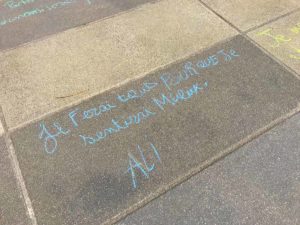 Je Ferai tous POUR que Je
sentirai Mieux.
ALI
Je